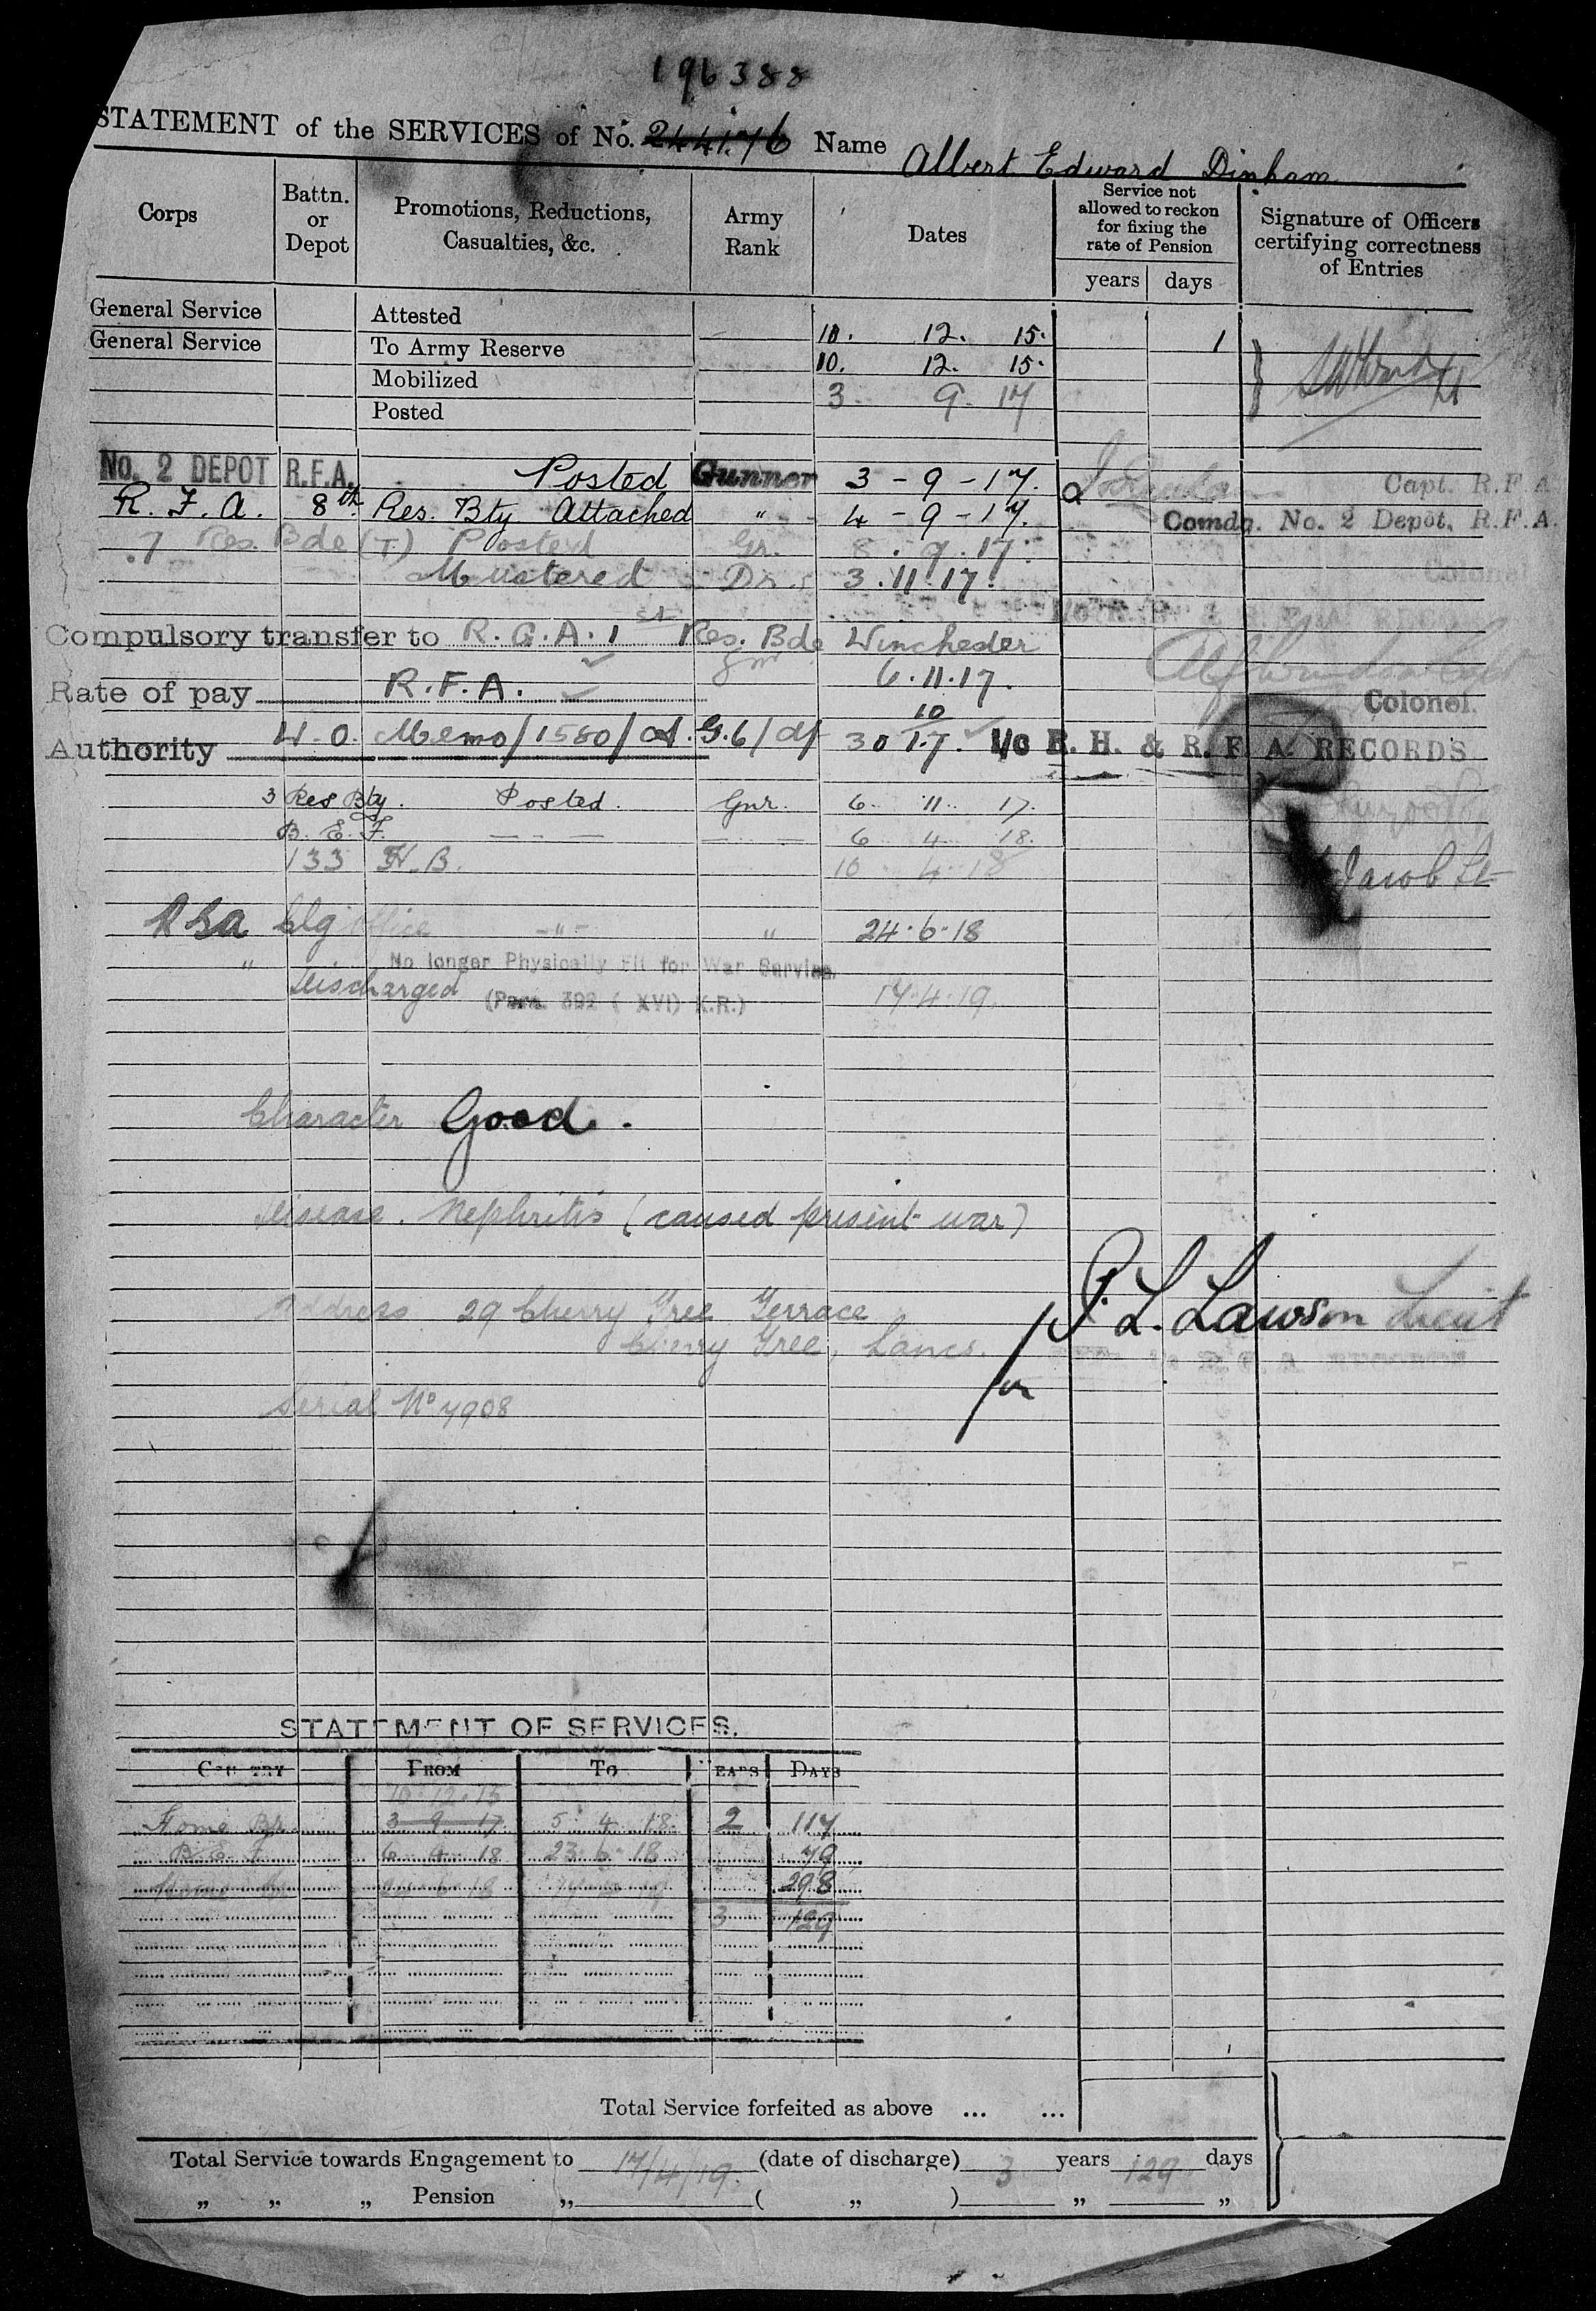 196388
STATEMENT of the SERVICES of No. 244176 Name Albert Edward Dinham
Corps
Battn. or Depot
Promotions, Reductions, Casualties, &c.
Army Rank
Dates
Service not allowed to reckon for fixing the rate of Pension
years days
Signature of Officers certifying correctness of Entries
General Service Attested 10. 12. 15. 1
General Service To Army Reserve 10. 12. 15.
Mobilized 3 9 17
Posted
No. 2 DEPOT R.F.A. Posted Gunner 3-9-17. Capt. R.F.A
R.F.A. 8th Res. Bty Attached " 4-9-17. Comdg. No. 2 Depôt, R.F.A.
7 Res. Bde (T.) Posted Gr. 8.9.17.
Mustered Dr. 3.11.17. Colonel
Compulsory transfer to R.G.A. 1st Res. Bde Winchester
Gnr
Rate of pay R.F.A. 6.11.17. Colonel.
Authority W.O. Memo/1580/ 30 10 17. I/c R. H. & R. F. A. RECORDS
3 Res Bty. Posted. Gnr. 6. 11. 17.
B.E.F. 6 4 18.
133 H.B. 10 4 18 Jacob Lt
RGA Clg Office -"- " 24.6.18
" No longer Physically Fit for War Service.
Discharged (Para 392 (XVI) K.R.) 17.4.19.
Character Good.
Disease. Nephritis (caused present war)
Address 29 Cherry Tree Terrace
Cherry Tree, Lancs.
for P. L. Lawson Lieut
Serial No 7908
STATEMENT OF SERVICES.
COUNTRY FROM TO YEARS DAYS
10.12.15
Home 3 9 17 5 4 18 2 117
B.E.F 6 4 18 23 6 18 79
Home 298
3 129
Total Service forfeited as above ... ...
Total Service towards Engagement to 17/4/19. (date of discharge) 3 years 129 days
„ „ „ Pension „ ( „ ) „ „